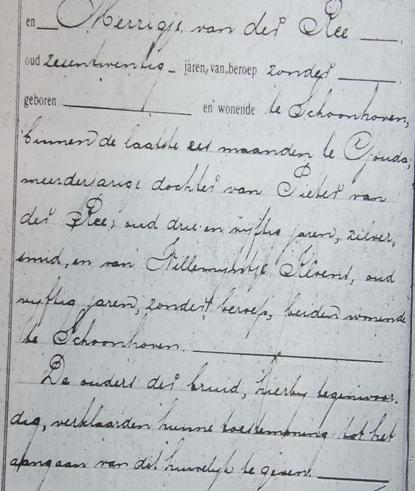 en Merrigje van der Ree
oud zesentwintig jaren, van beroep zonder
geboren en wonende te Schoonhoven,
binnen de laatste zes maanden te Gouda,
meerderjarige dochter van Pieter van
der Ree, oud drie en vijftig jaren, zilver-
smid, en van Willemijntje, oud
vijftig jaren, zonder beroep, beiden wonende
te Schoonhoven.
De ouders der bruid, hierbij tegenwoor-
dig, verklaarden hunne toestemming tot het
aangaan van dit huwelijk te geven.